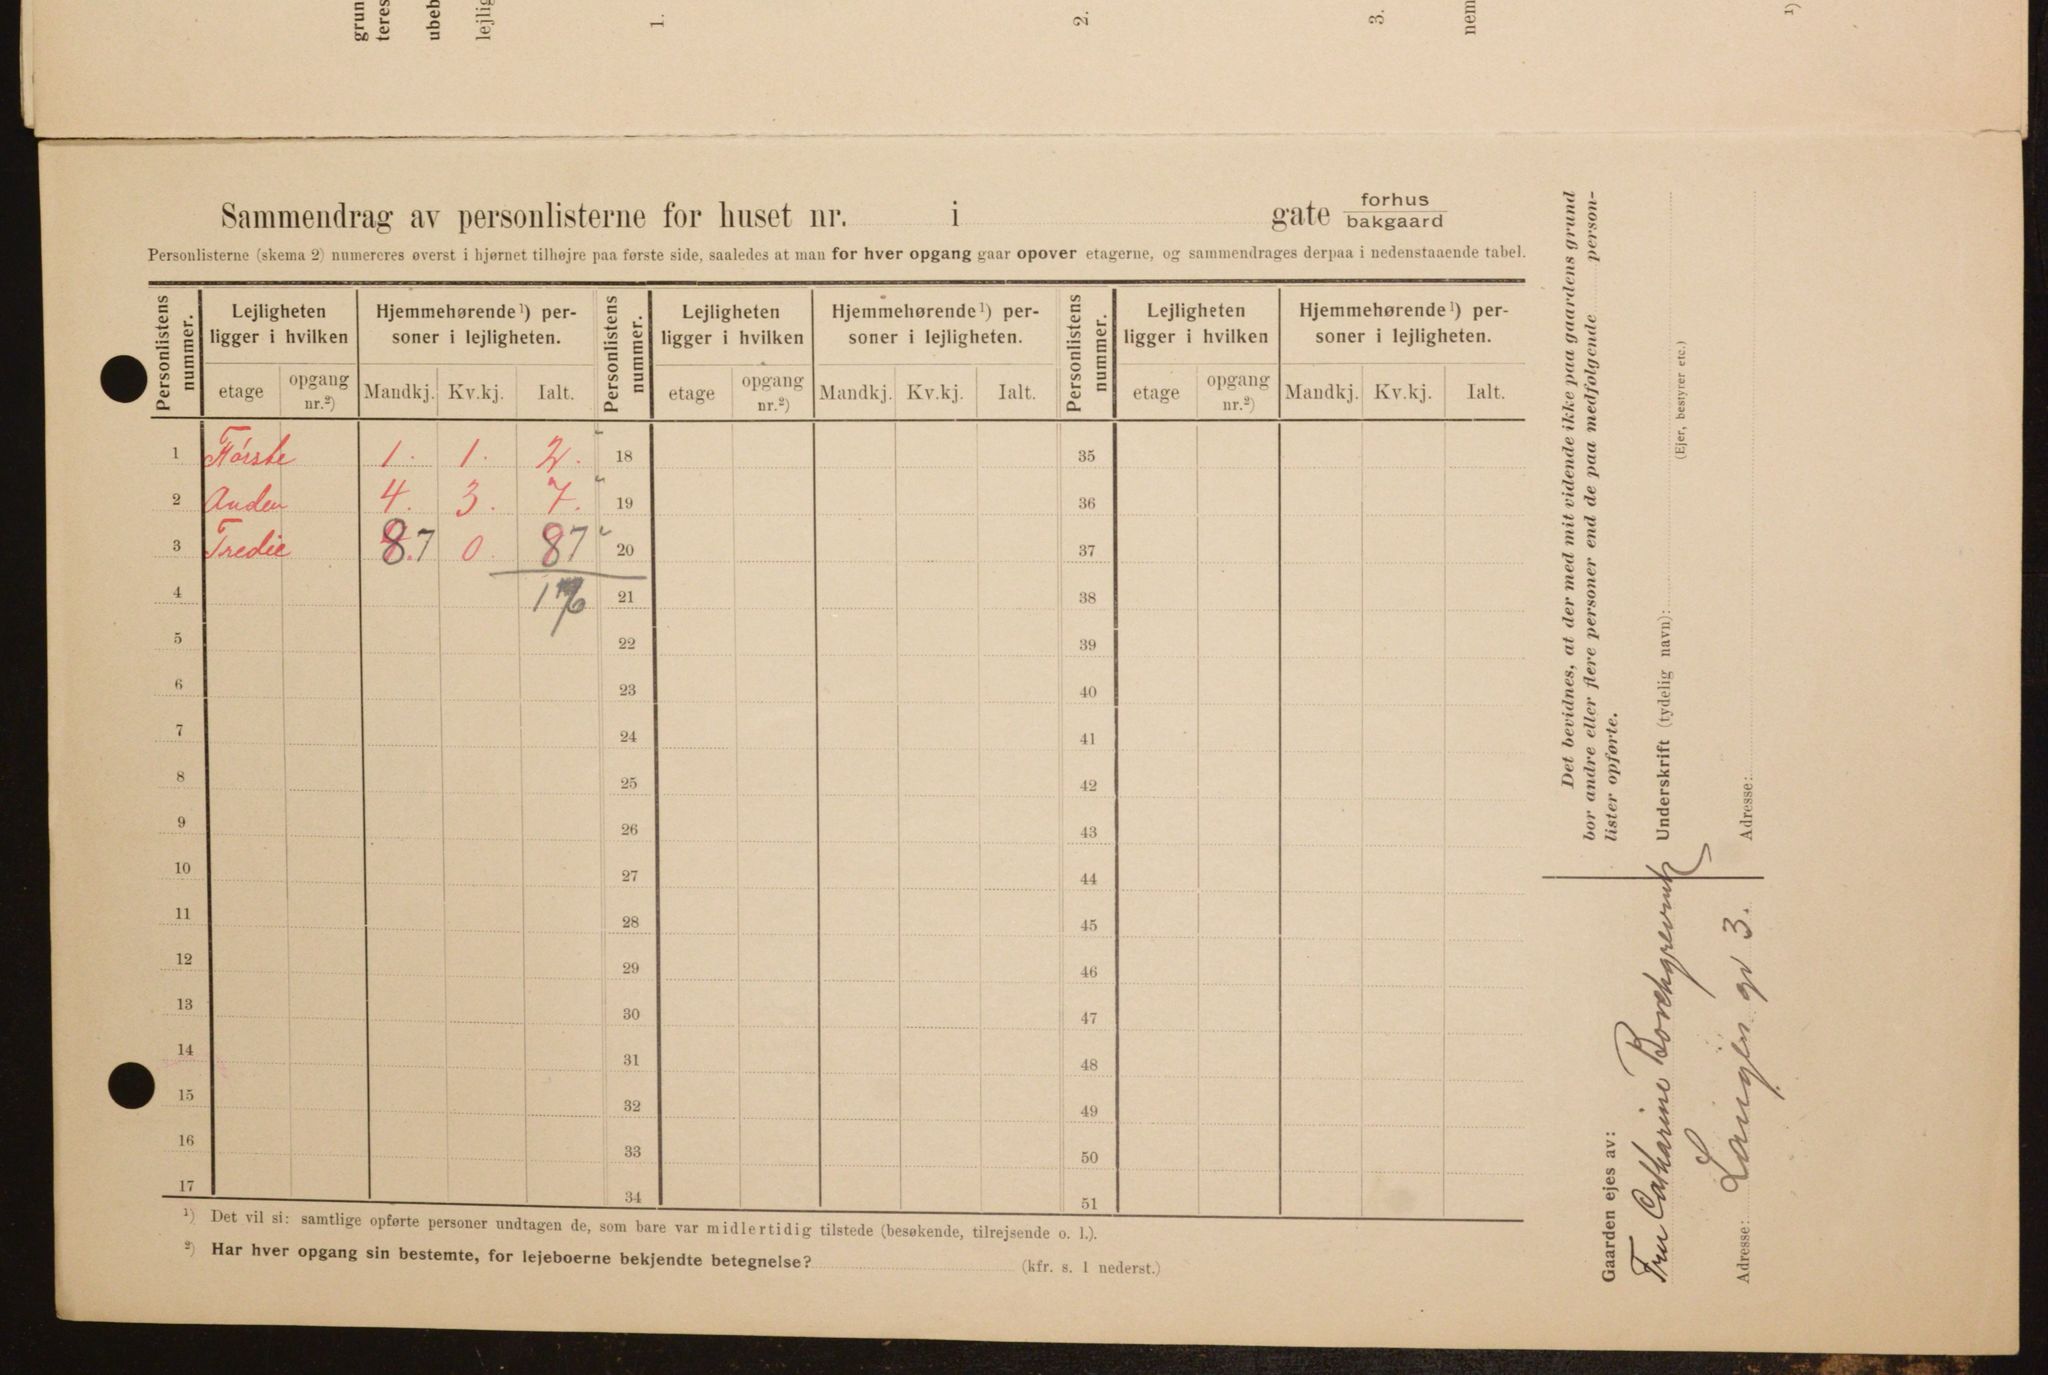 grun
teres
ubeb
lejlig
1.
2.
3.
nem
1)
Sammendrag av personlisterne for huset nr. i gate forhus
bakgaard
Personlisterne (skema 2) numereres øverst i hjørnet tilhøjre paa første side, saaledes at man for hver opgang gaar opover etagerne, og sammendrages derpaa i nedenstaaende tabel.
Personlistens nummer. Lejligheten ligger i hvilken Hjemmehørende 1) personer i lejligheten. Personlistens nummer. Lejligheten ligger i hvilken Hjemmehørende 1) personer i lejligheten. Personlistens nummer. Lejligheten ligger i hvilken Hjemmehørende 1) personer i lejligheten.
etage opgang nr.2) Mandkj. Kv.kj. Ialt. etage opgang nr.2) Mandkj. Kv.kj. Ialt. etage opgang nr.2) Mandkj. Kv.kj. Ialt.
1 Første 1. 1. 2. 18 35
2 Anden 4. 3. 7. 19 36
3 Tredie 8.7 0. 87 20 37
4 16 21 38
5 22 39
6 23 40
7 24 41
8 25 42
9 26 43
10 27 44
11 28 45
12 29 46
13 30 47
14 31 48
15 32 49
16 33 50
17 34 51
1) Det vil si: samtlige opførte personer undtagen de, som bare var midlertidig tilstede (besøkende, tilrejsende o. l.).
2) Har hver opgang sin bestemte, for lejeboerne bekjendte betegnelse? (kfr. s. 1 nederst.)
Det bevidnes, at der med mit vidende ikke paa gaardens grund
bor andre eller flere personer end de paa medfølgende person-
lister opførte.
Underskrift (tydelig navn):
(Ejer, bestyrer etc.)
Adresse:
Gaarden ejes av:
Fru Catharine Borchgrevink
Adresse: gt 3.